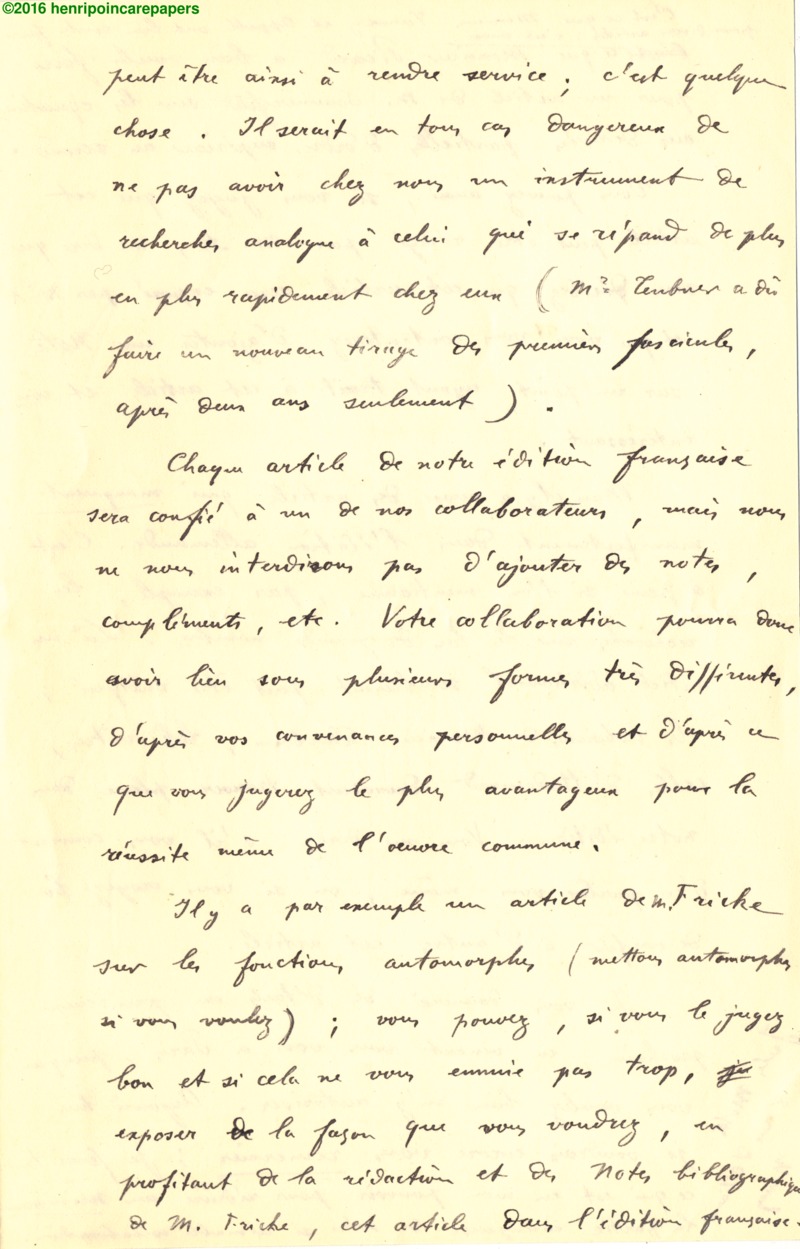 ©2016 henripoincarepapers
peut être ainsi à rendre service ; c'est quelque
chose . Il serait en tous cas dangereux de
ne pas avoir chez nous un instrument de
recherches analogue à celui qui se répand de plus
en plus rapidement chez eux ( Mr Teubner a dû
faire un nouveau tirage des premiers fascicules,
après deux ans seulement ) .
Chaque article de notre édition française
sera confié à un de nos collaborateurs, mais nous
ne nous interdisons pas d'ajouter des notes,
compléments, etc. Votre collaboration pourra donc
avoir lieu sous plusieurs formes très différentes,
d'après vos convenances personnelles et d'après ce
que vous jugerez le plus avantageux pour la
réussite même de l'oeuvre commune.
Il y a par exemple un article de M. Fricke
sur les fonctions automorphes (mettons automorphes
si vous voulez) ; vous pouvez, si vous le jugez
bon et si cela ne vous ennuie pas trop,
exposer de la façon que vous voudrez, en
profitant de la rédaction et des Notes bibliographiques
de M. Fricke, cet article dans l'édition française.